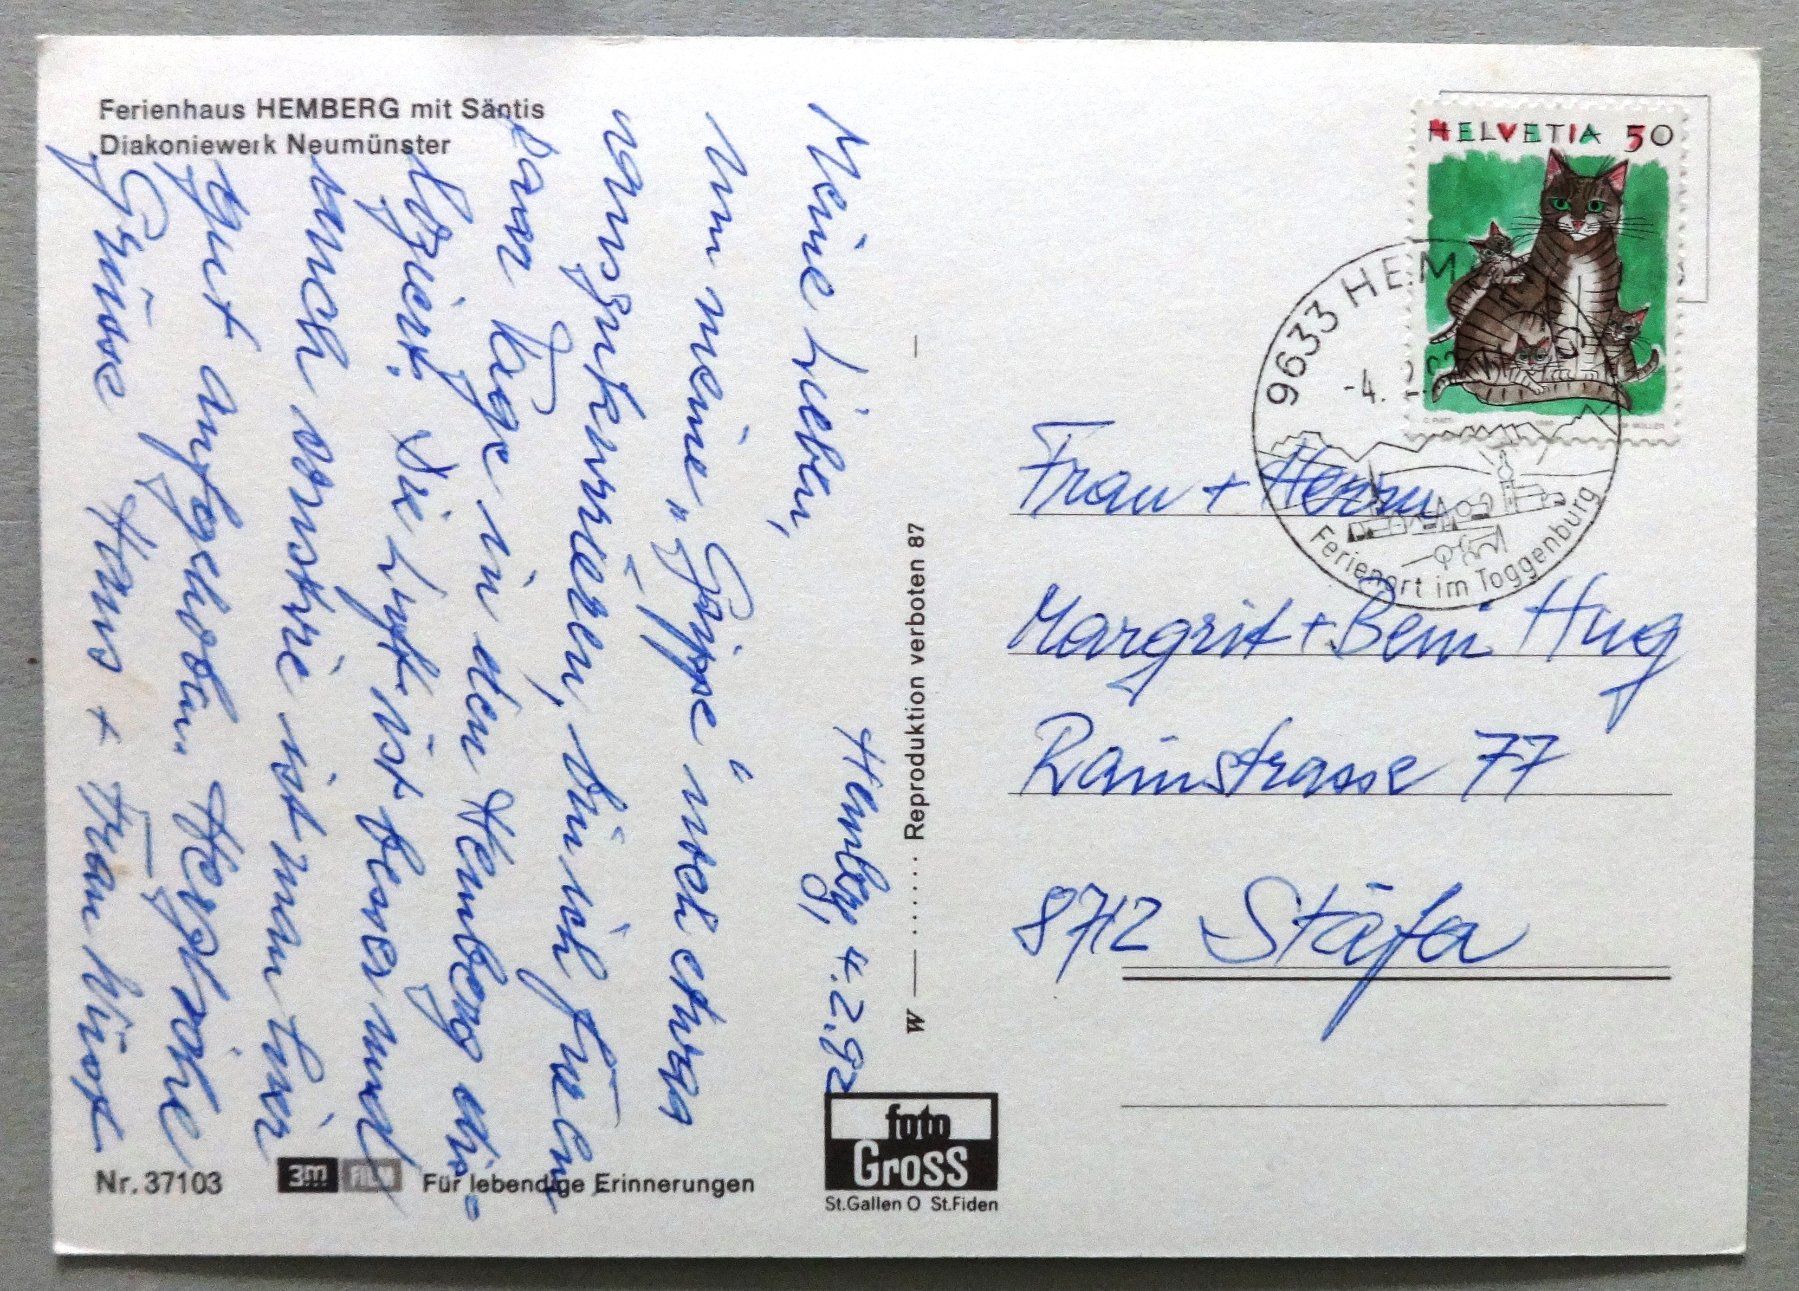 Ferienhaus HEMBERG mit Säntis
Diakoniewerk Neumünster
HELVETIA 50
9633 HEM
-4. 2.
Ferienort im Toggenburg
Hemberg, 4.2.92
Meine Lieben,
Um meine „Grippe" noch etwas
auszukurieren, bin ich für ein
paar Tage in den Hemberg dis-
loziert. Die Luft ist besser und
auch sonst ist man hier
gut aufgehoben. Herzliche
Grüsse Hans +
Frau + Herrn
Margrit + Beni Hug
Rainstrasse 77
8712 Stäfa
W Reproduktion verboten 87
Nr. 37103
3m FILM Für lebendige Erinnerungen
foto
Gross
St.Gallen O St.Fiden